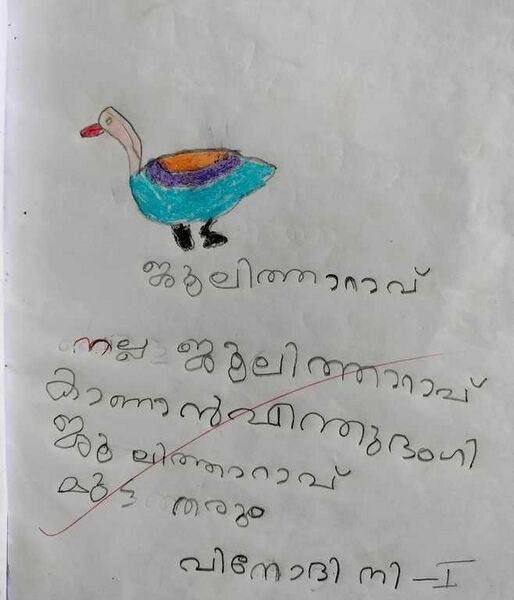 ജൂലിത്താറാവ്
നല്ല ജൂലിത്താറാവ്
കാണാൻ എന്തുഭംഗി
ജൂലിത്താറാവ്
മുട്ട തരും
വിനോദിനി - I